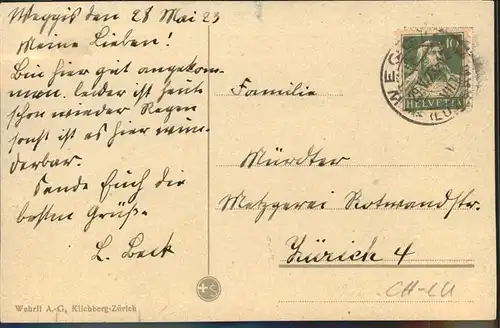 Weggis den 28 Mai 23
Meine Lieben!
Bin hier gut angekom-
men. leider ist heute
schon wieder Regen
sonst ist es hier wun-
derbar.
Sende Euch die
besten Grüße
L. Beck
Familie
Mürdter
Metzgerei Rotwandstr.
Zürich 4
10
HELVETIA
WEGGIS
CH-LU
Wehrli A.-G., Kilchberg-Zürich